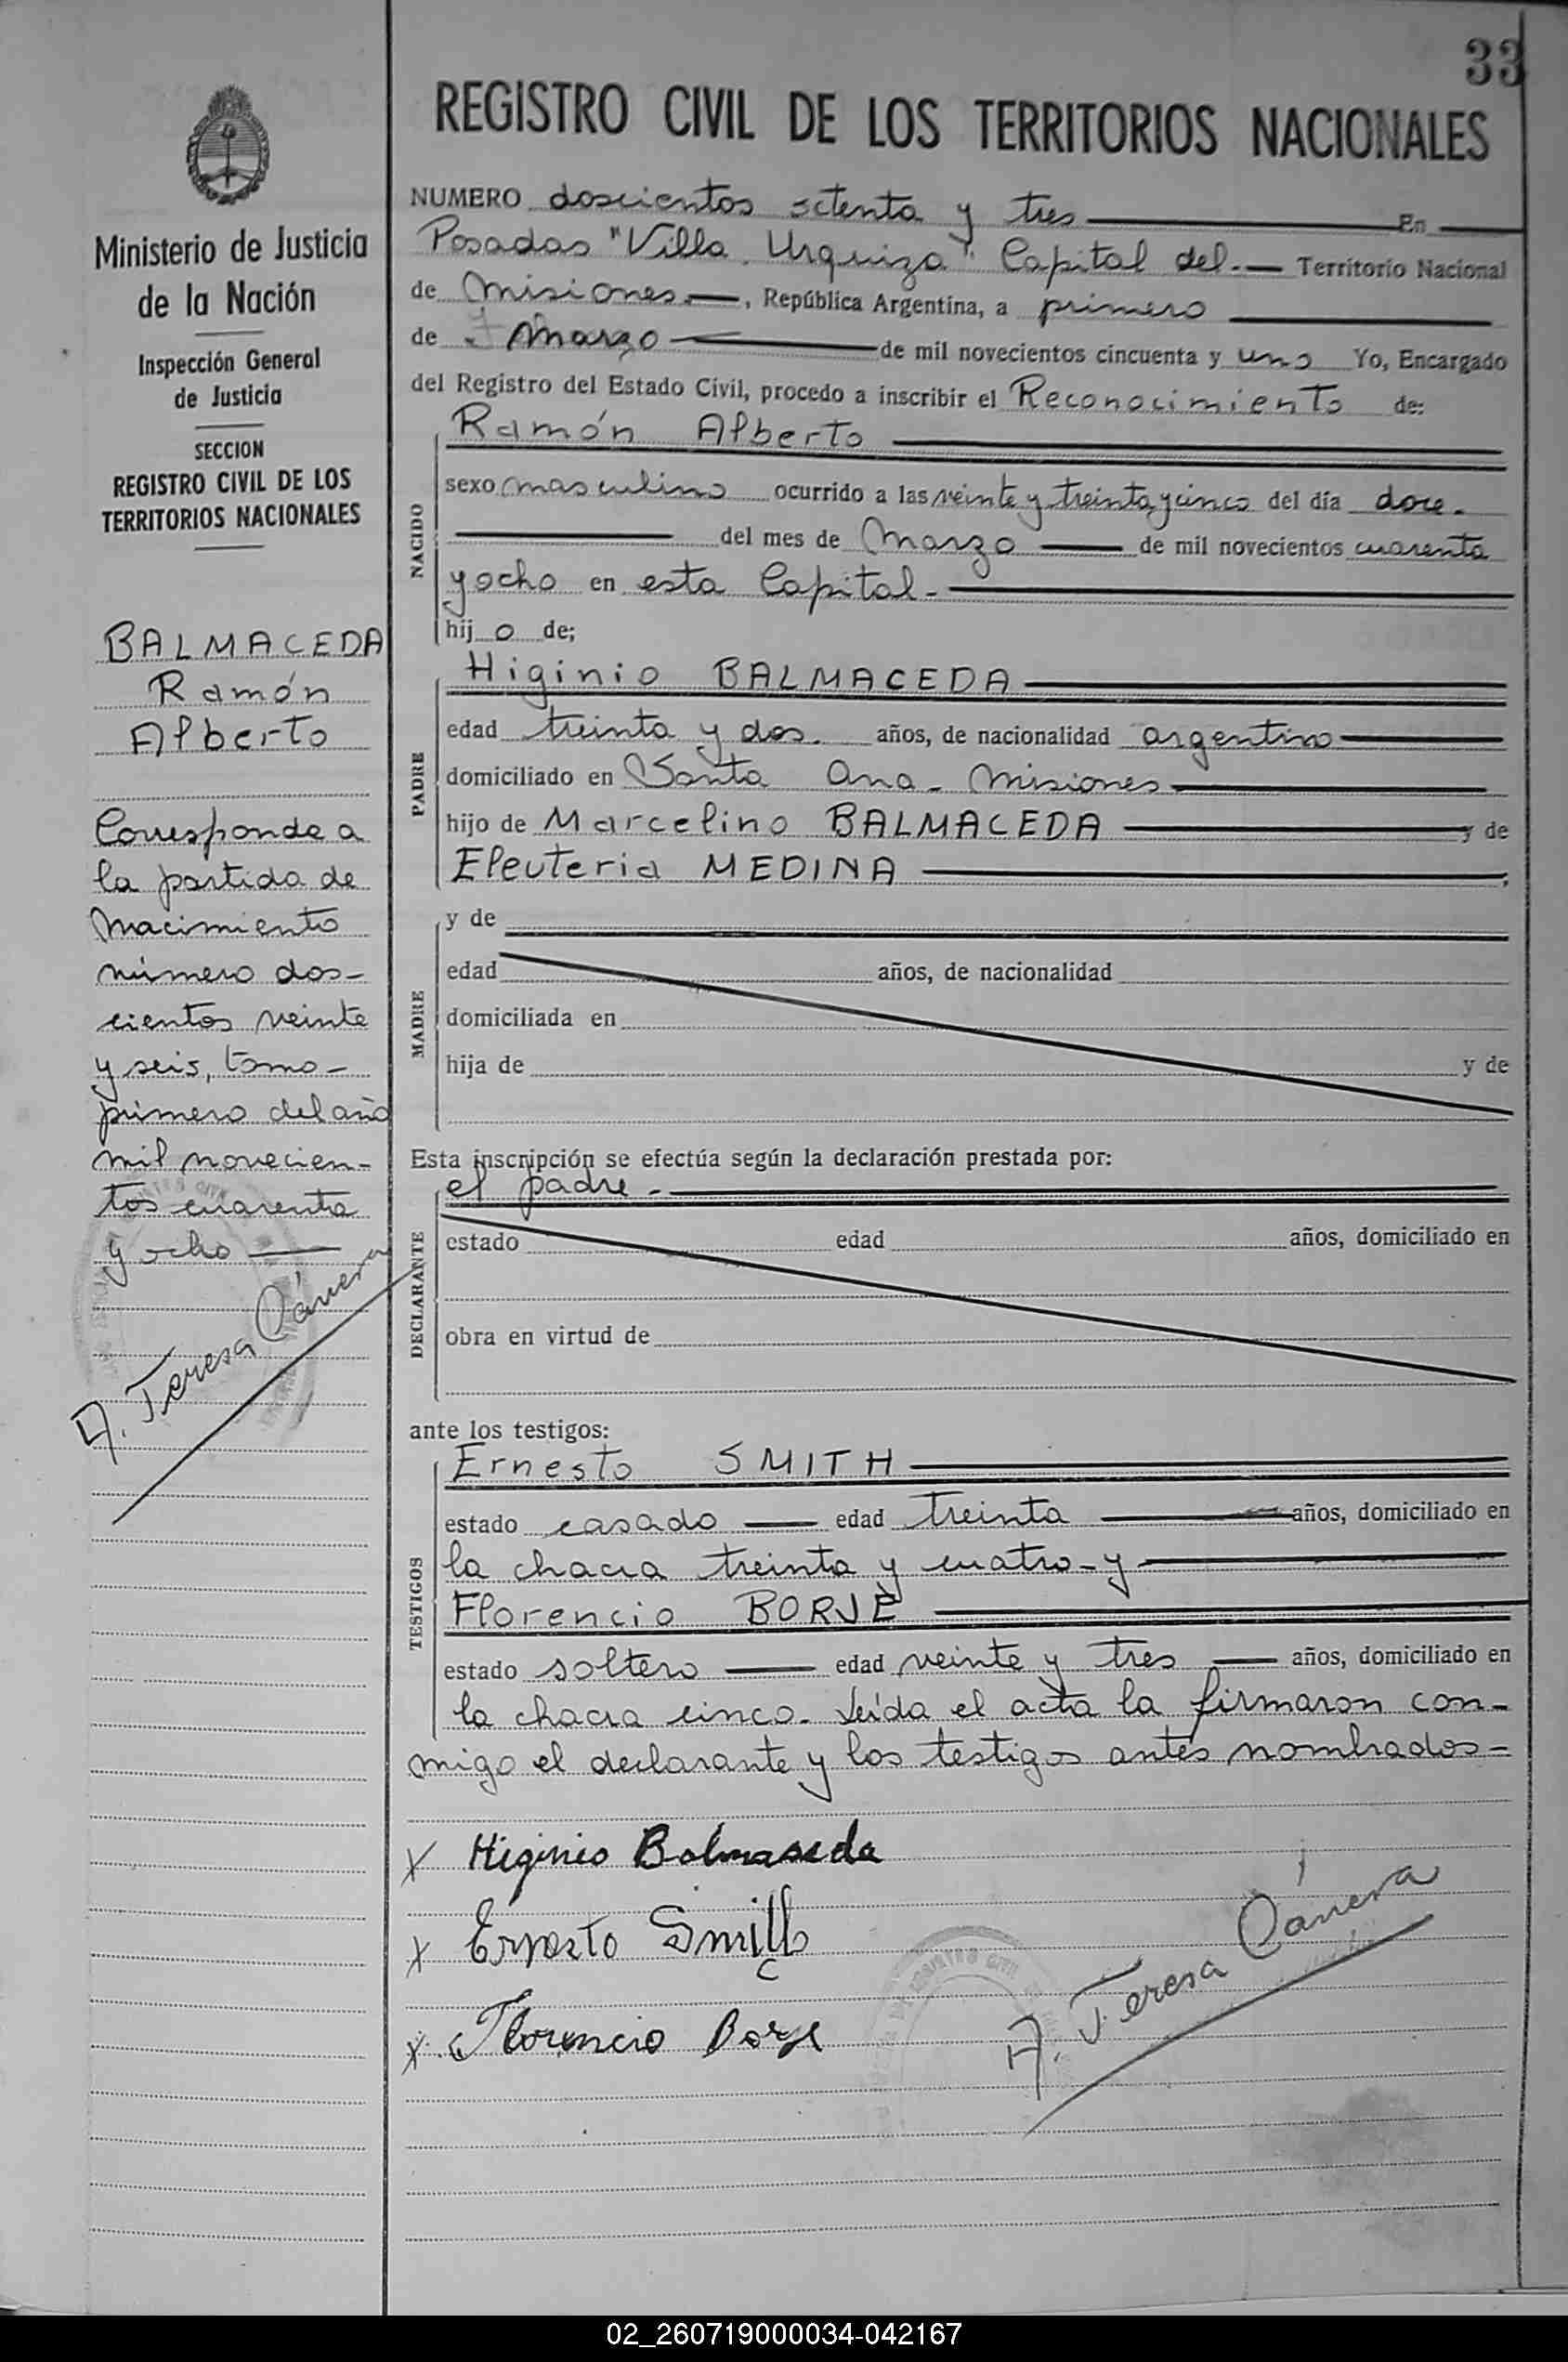 33
REGISTRO CIVIL DE LOS TERRITORIOS NACIONALES
Ministerio de Justicia
de la Nación
Inspección General
de Justicia
SECCION
REGISTRO CIVIL DE LOS
TERRITORIOS NACIONALES
BALMACEDA
Ramón
Alberto
Corresponde a
la partida de
nacimiento
número dos-
cientos veinte
y seis, tomo-
primero del año
mil novecien-
tos cuarenta
y ocho
A. Teresa
NUMERO doscientos setenta y tres En
Posadas "Villa Urquiza" Capital del.- Territorio Nacional
de Misiones.-, República Argentina, a primero
de Marzo de mil novecientos cincuenta y uno Yo, Encargado
del Registro del Estado Civil, procedo a inscribir el Reconocimiento de:
NACIDO
Ramón Alberto
sexo masculino ocurrido a las veinte y treinta y cinco del día doce.
del mes de Marzo de mil novecientos cuarenta
y ocho en esta Capital.-
hij o de;
PADRE
Higinio BALMACEDA
edad treinta y dos. años, de nacionalidad argentino
domiciliado en Santa Ana - Misiones
hijo de Marcelino BALMACEDA y de
Eleuteria MEDINA ;
MADRE
y de
edad años, de nacionalidad
domiciliada en
hija de y de
Esta inscripción se efectúa según la declaración prestada por:
DECLARANTE
el padre.-
estado edad años, domiciliado en
obra en virtud de
ante los testigos:
TESTIGOS
Ernesto SMITH
estado casado edad treinta años, domiciliado en
la chacra treinta y cuatro-y
Florencio BORJE
estado soltero edad veinte y tres años, domiciliado en
la chacra cinco. Leída el acta la firmaron con-
migo el declarante y los testigos antes nombrados-
X Higinio Balmaseda
X Ernesto Smith
X Florencio Borje
A. Teresa
02_260719000034-042167